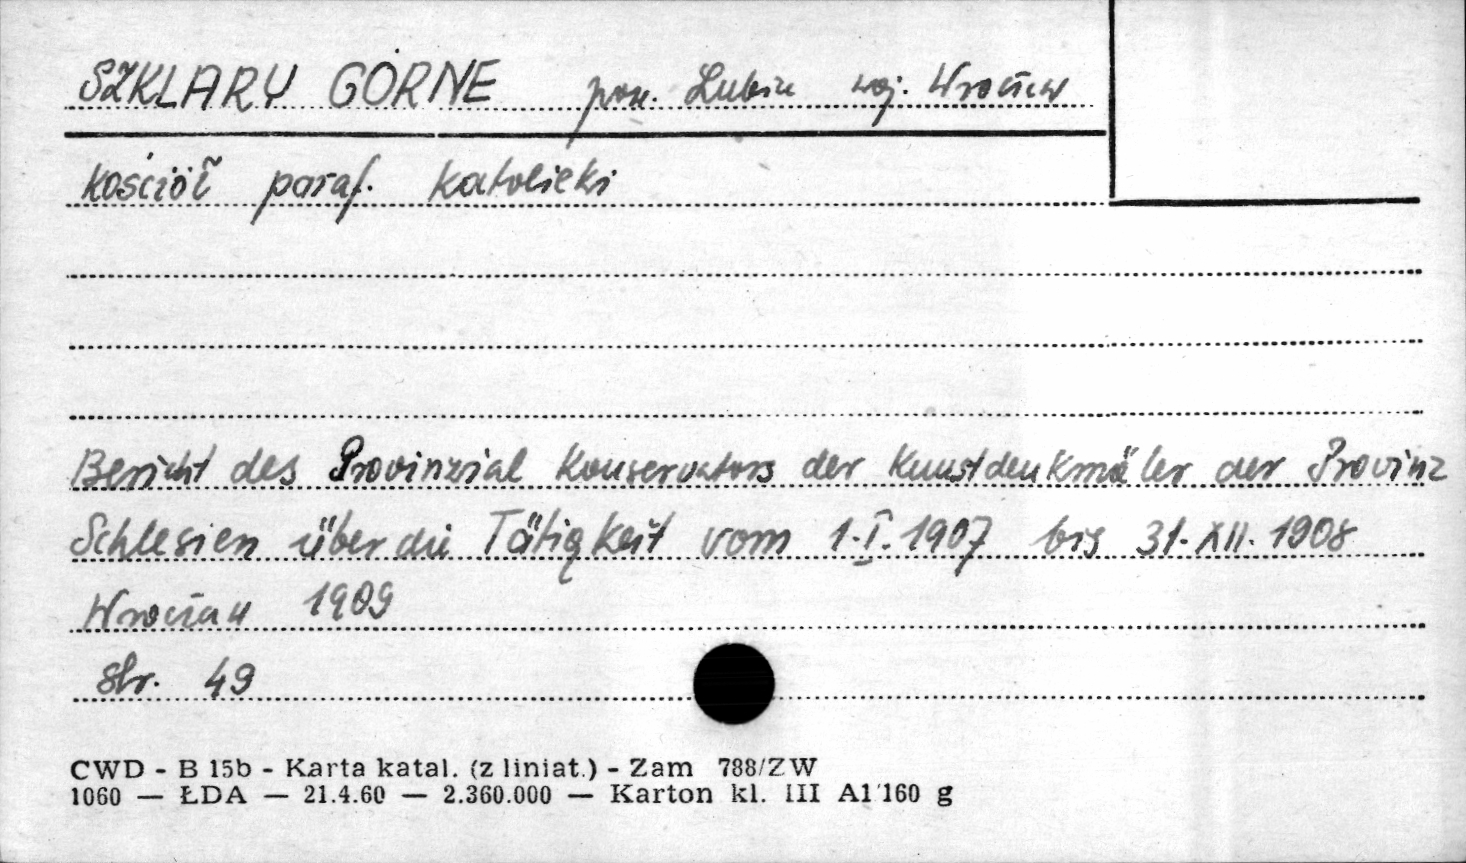 SZKLARY GÓRNE pow. Lubin woj. Wrocław
kościół paraf. katolicki
Bericht des Provinzial Konservators der Kunstdenkmäler der Provinz
Schlesien über die Tätigkeit vom 1.I.1907 bis 31.XII.1908
Wrocław 1909
str. 49
CWD - B 15b - Karta katal. (z liniat.) - Zam 788/ZW
1060 — ŁDA — 21.4.60 — 2.360.000 — Karton kl. III A1 160 g